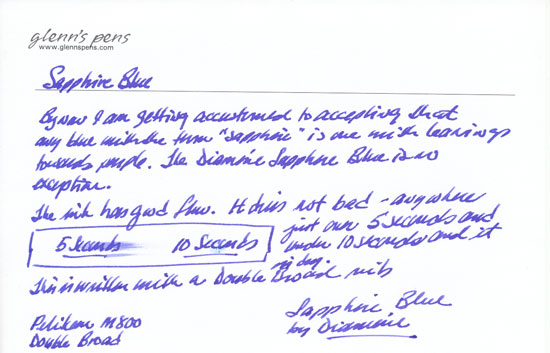 glenn's pens
www.glennspens.com
Sapphire Blue
By now I am getting accustomed to accepting that
any blue with the term "sapphire" is one with leanings
towards purple. The Diamine Sapphire Blue is no
exception.
The ink has good flow. It dries not bad - anywhere
just over 5 seconds and
under 10 seconds and it
is dry.
5 Seconds 10 Seconds
This is written with a Double Broad nib
Pelikan M800
Double Broad
Sapphire Blue
by Diamine